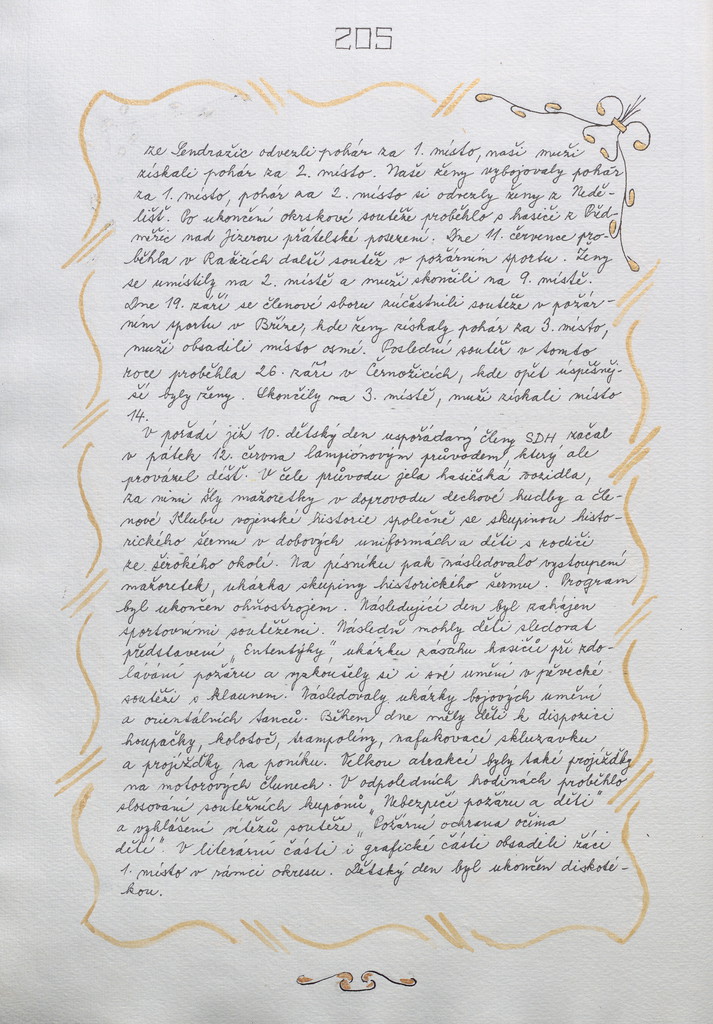 205
ze Sendražic odvezli pohár za 1. místo, naši muži
získali pohár za 2. místo. Naše ženy vybojovaly pohár
za 1. místo, pohár za 2. místo si odvezly ženy z Nedě-
lišť. Po ukončení okrskové soutěže proběhlo s hasiči z Před-
měřic nad Jizerou přátelské posezení. Dne 11. července pro-
běhla v Račicích další soutěž v požárním sportu. Ženy
se umístily na 2. místě a muži skončili na 9. místě.
Dne 19. září se členové sboru zúčastnili soutěže v požár-
ním sportu v Bříze, kde ženy získaly pohár za 3. místo,
muži obsadili místo osmé. Poslední soutěž v tomto
roce proběhla 26. září v Černožicích, kde opět úspěšněj-
ší byly ženy. Skončily na 3. místě, muži získali místo
14.
V pořadí již 10. dětský den uspořádaný členy SDH začal
v pátek 12. června lampiónovým průvodem, který ale
provázel déšť. V čele průvodu jela hasičská vozidla,
za nimi šly mažoretky v doprovodu dechové hudby a čle-
nové Klubu vojenské historie společně se skupinou histo-
rického šermu v dobových uniformách a děti s rodiči
ze širokého okolí. Na písníku pak následovalo vystoupení
mažoretek, ukázka skupiny historického šermu. Program
byl ukončen ohňostrojem. Následující den byl zahájen
sportovními soutěžemi. Následně mohly děti sledovat
představení „Ententýky", ukázku zásahu hasičů při zdo-
lávání požáru a vyzkoušely si i své umění v pěvecké
soutěži s klaunem. Následovaly ukázky bojových umění
a orientálních tanců. Během dne měly děti k dispozici
houpačky, kolotoč, trampolíny, nafukovací skluzavku
a projížďky na poníku. Velkou atrakcí byly také projížďky
na motorových člunech. V odpoledních hodinách proběhlo
slosování soutěžních kuponů „Nebezpečí požáru a děti"
a vyhlášení vítězů soutěže „Požární ochrana očima
dětí". V literární části i grafické části obsadili žáci
1. místo v rámci okresu. Dětský den byl ukončen diskoté-
kou.